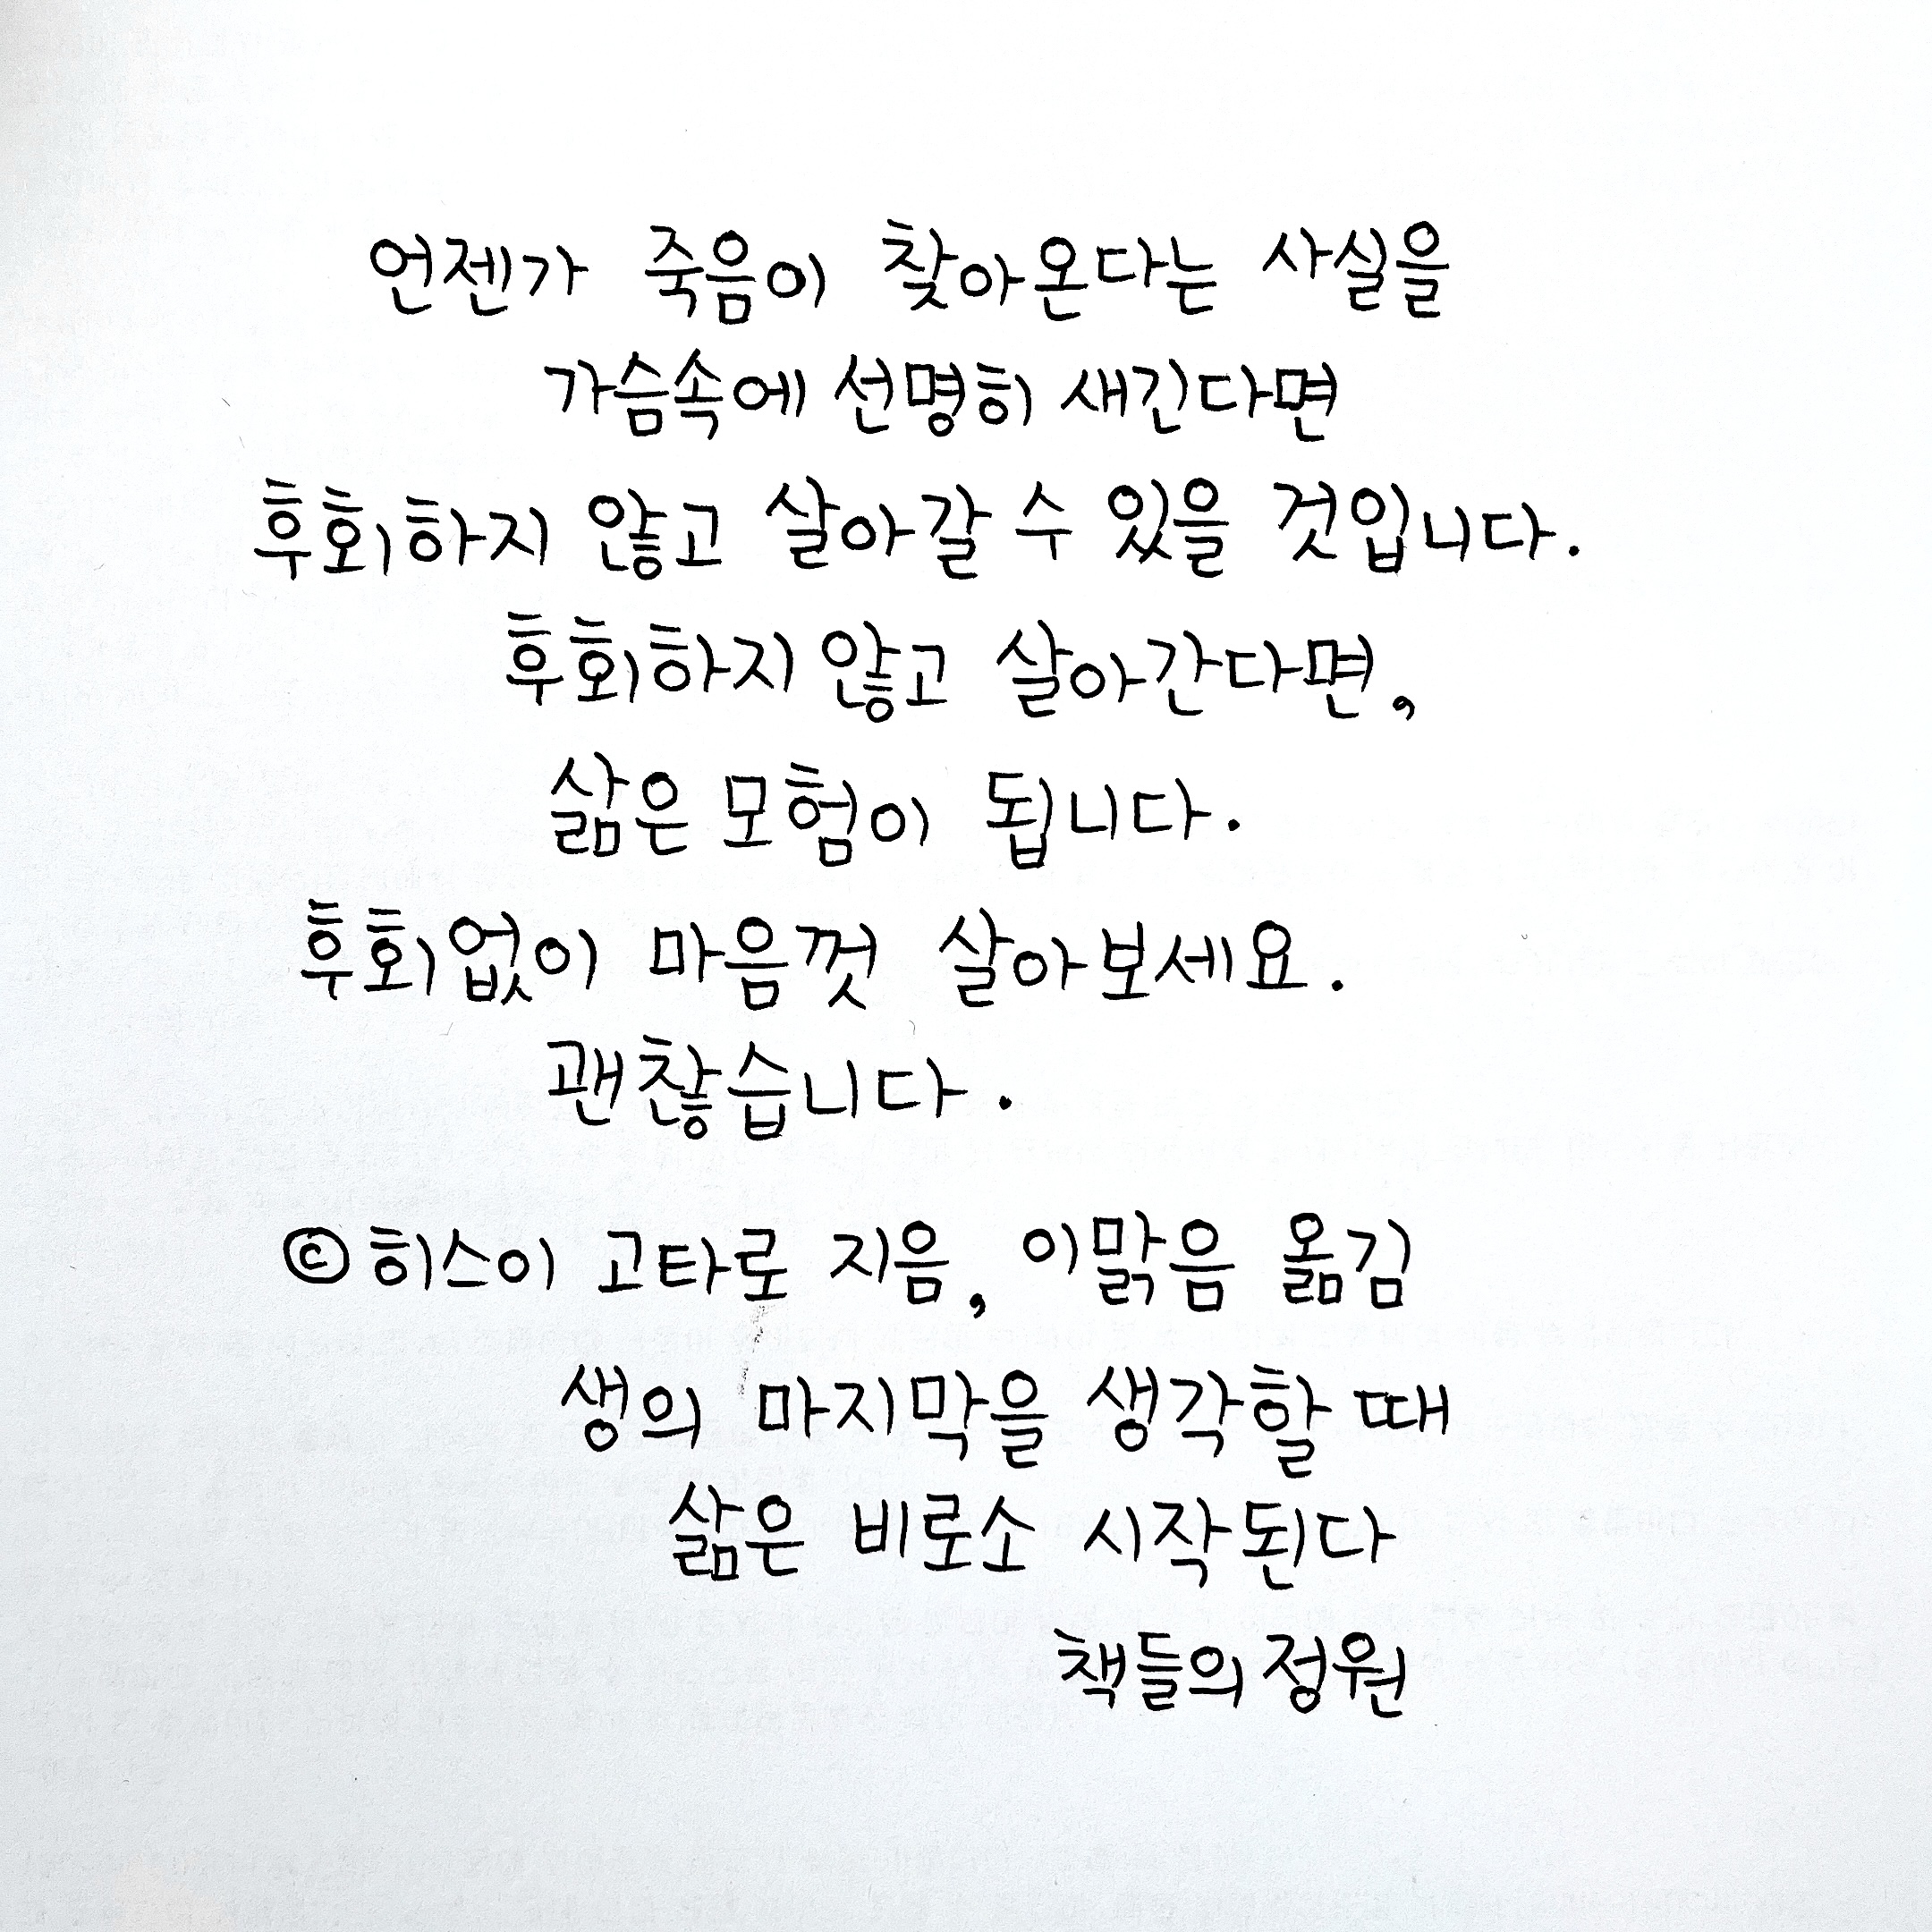 언젠가 죽음이 찾아온다는 사실을
가슴속에 선명히 새긴다면
후회하지 않고 살아갈 수 있을 것입니다.
후회하지 않고 살아간다면,
삶은 모험이 됩니다.
후회없이 마음껏 살아보세요.
괜찮습니다.
© 히스이 고타로 지음, 이맑음 옮김
생의 마지막을 생각할 때
삶은 비로소 시작된다
책들의 정원